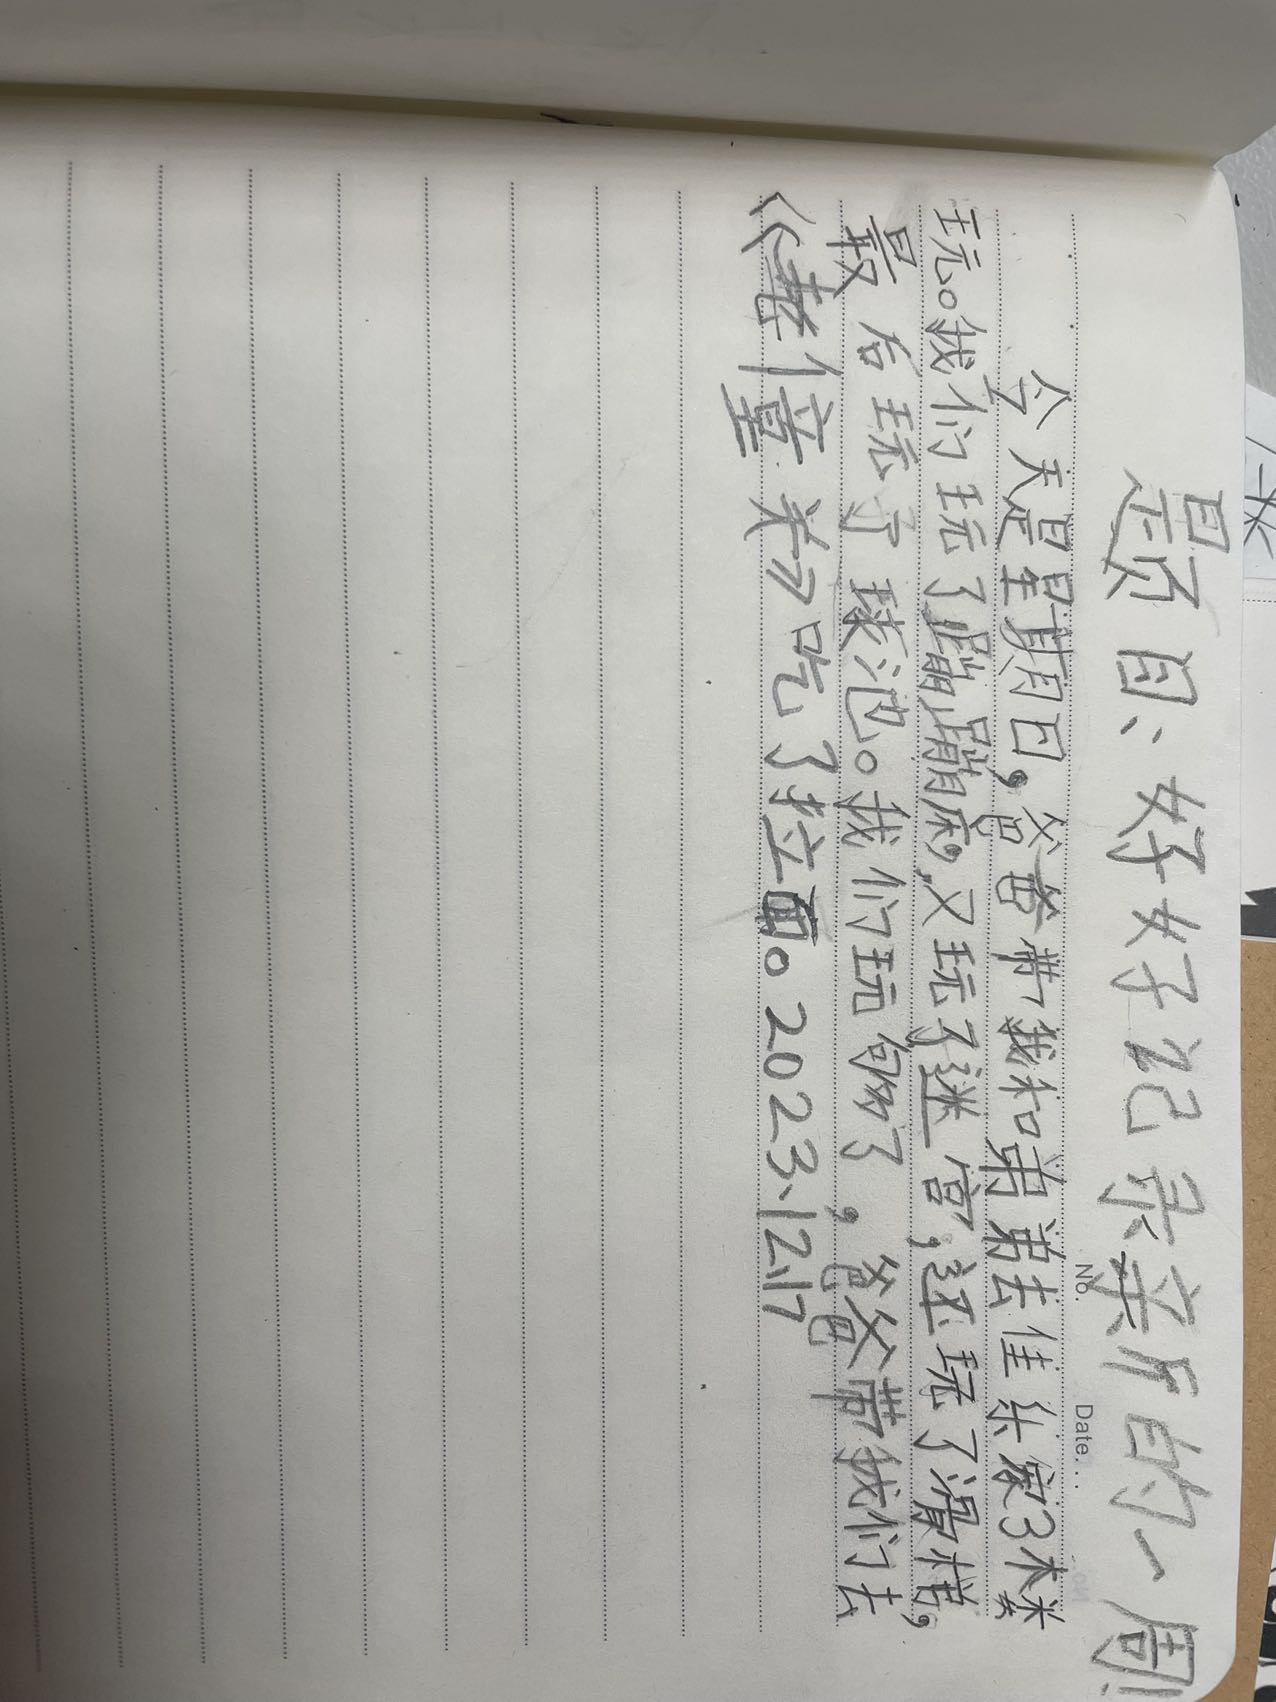 题目：好好记录亲的一周
No.
Date.
今天是星期日，爸爸带我和弟弟去佳乐家3楼
玩。我们玩了蹦蹦床，又玩了迷宫，还玩了滑梯，
最后玩了球池。我们玩够了，爸爸带我们去
吃了拉面。2023、12、17